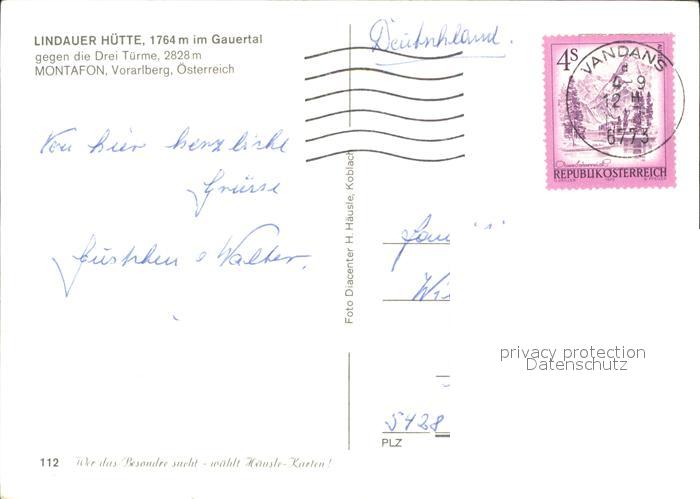 LINDAUER HÜTTE, 1764 m im Gauertal
gegen die Drei Türme, 2828 m
MONTAFON, Vorarlberg, Österreich
Deutschland.
4 S
VANDANS
6773
REPUBLIK ÖSTERREICH
Von hier herzliche
Grüsse
&amp; Walter.
Foto Diacenter H. Häusle, Koblach
privacy protection
Datenschutz
5428
PLZ
112 Wer das Besondre sucht - wählt Häusle-Karten!